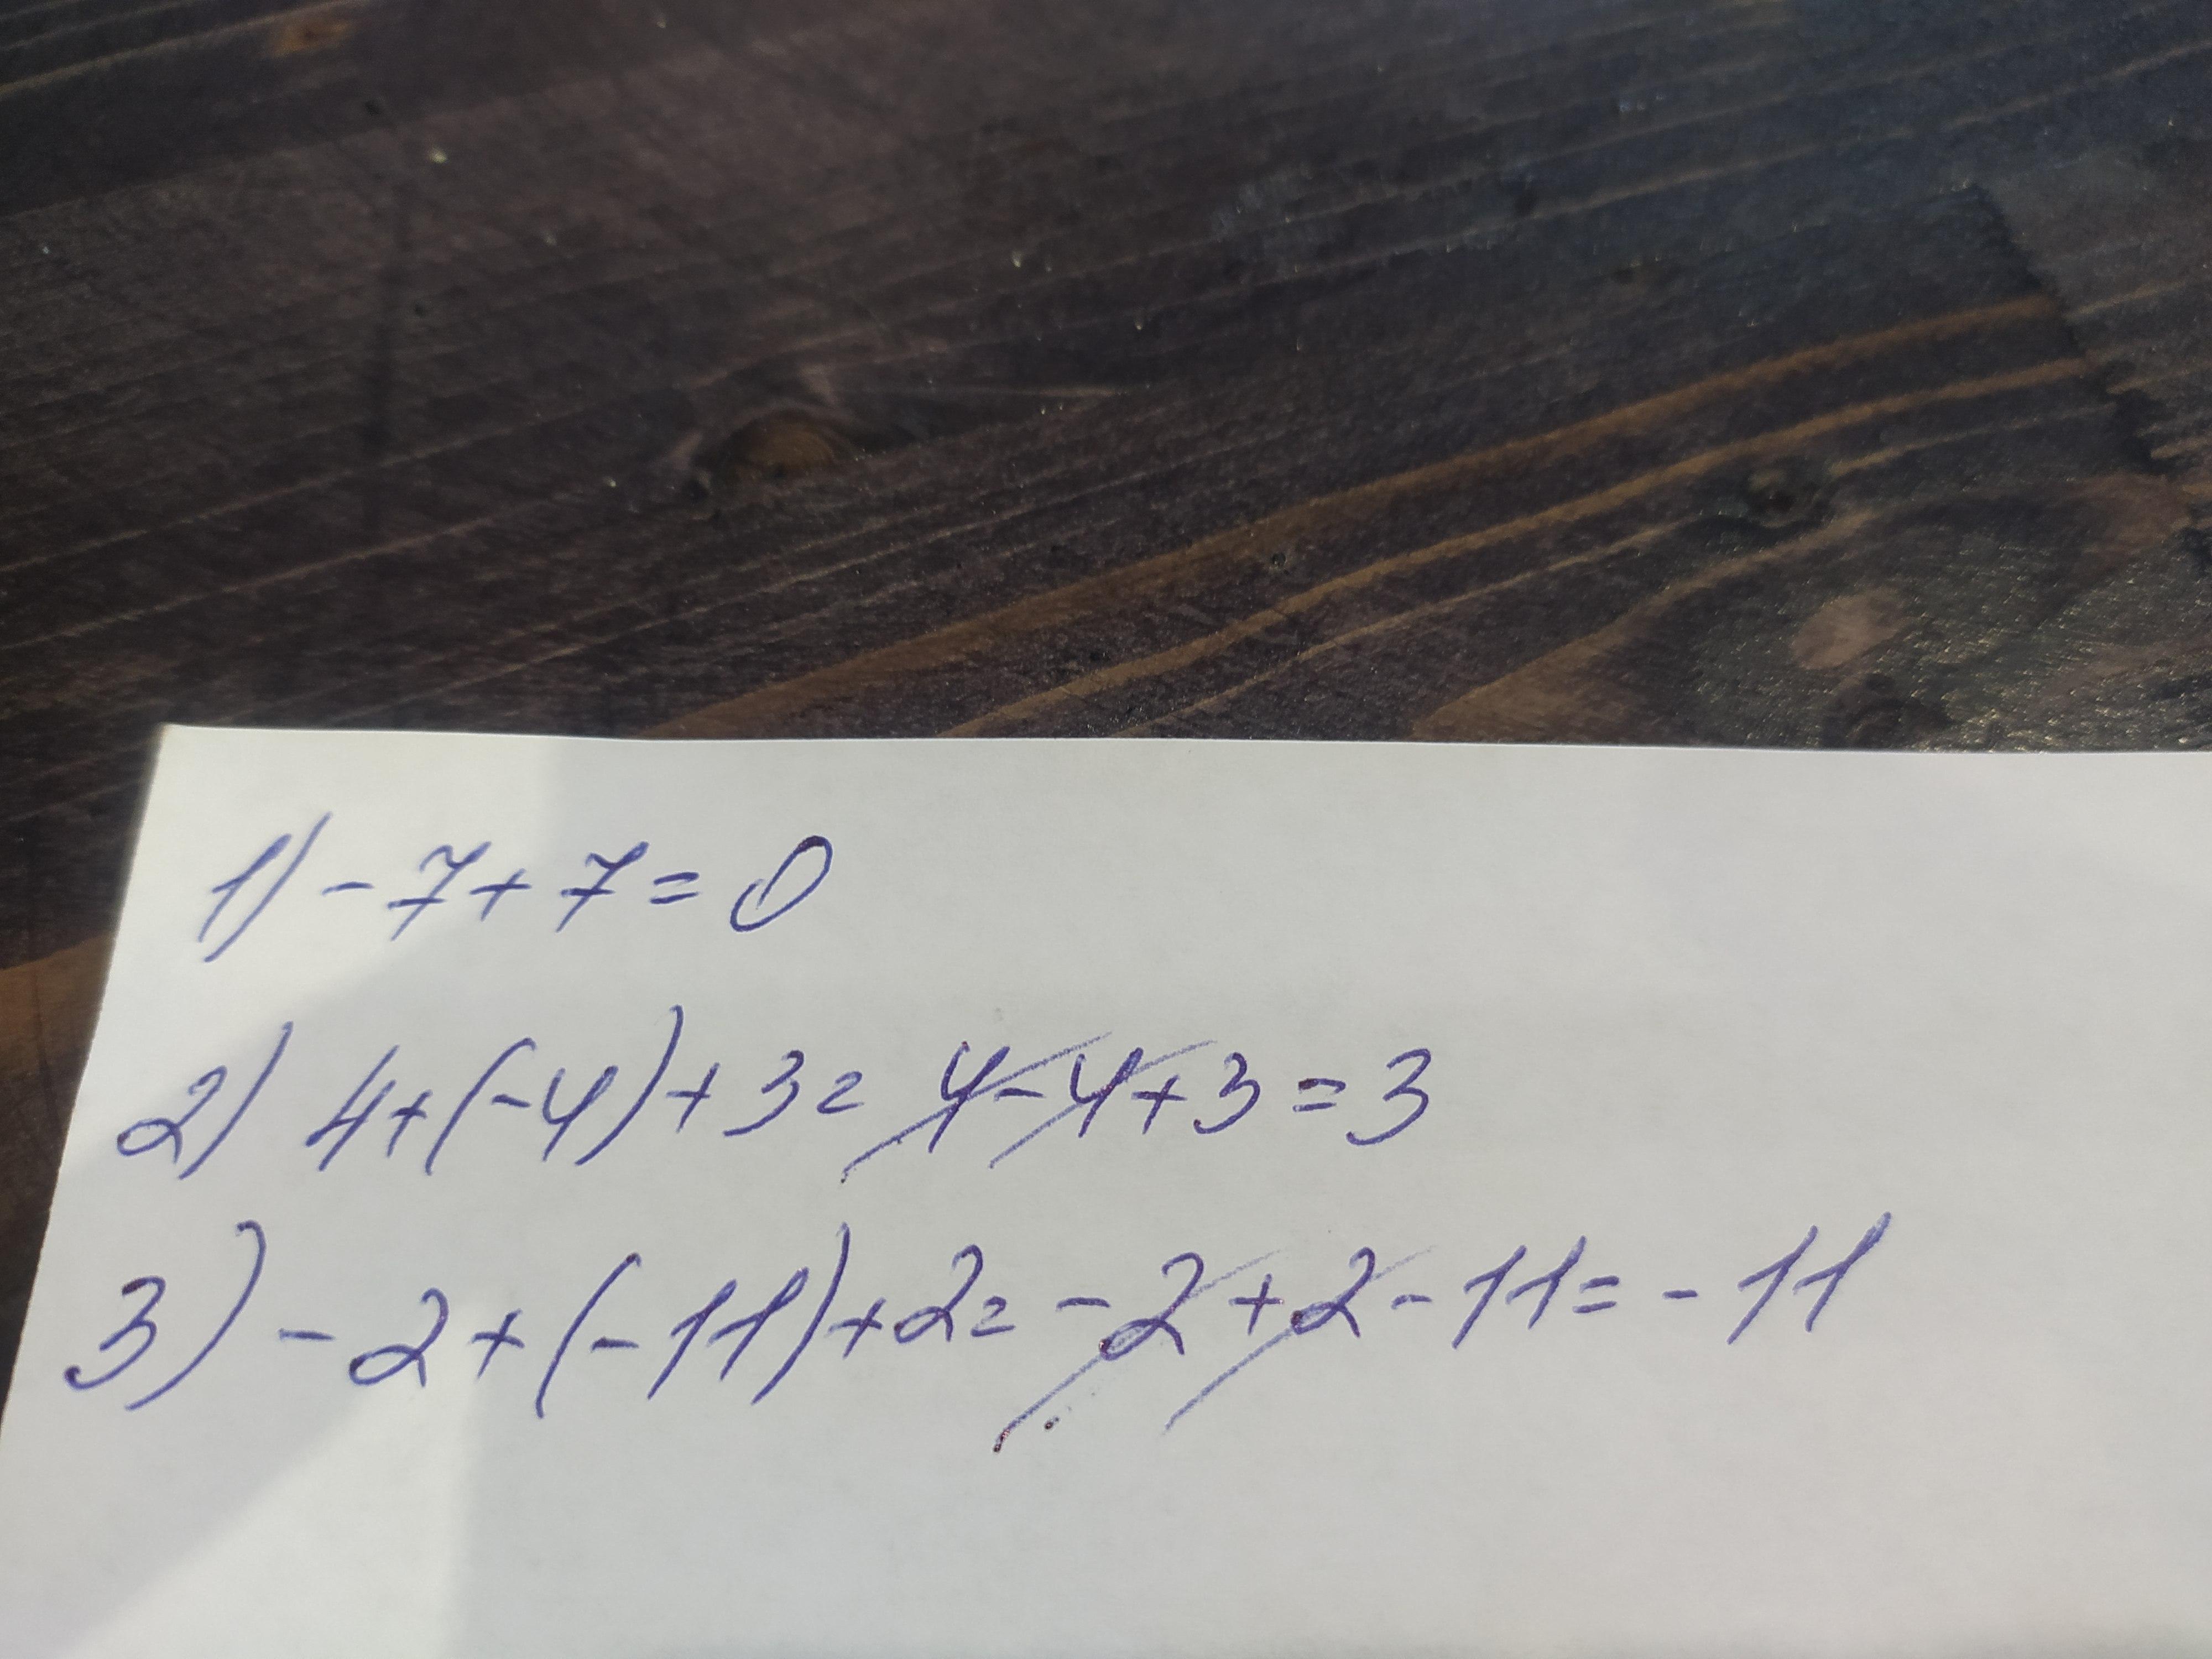 1) - 7 + 7 = 0
2) 4 + (-4) + 3 = 4 - 4 + 3 = 3
3) - 2 + (-11) + 2 = - 2 + 2 - 11 = - 11